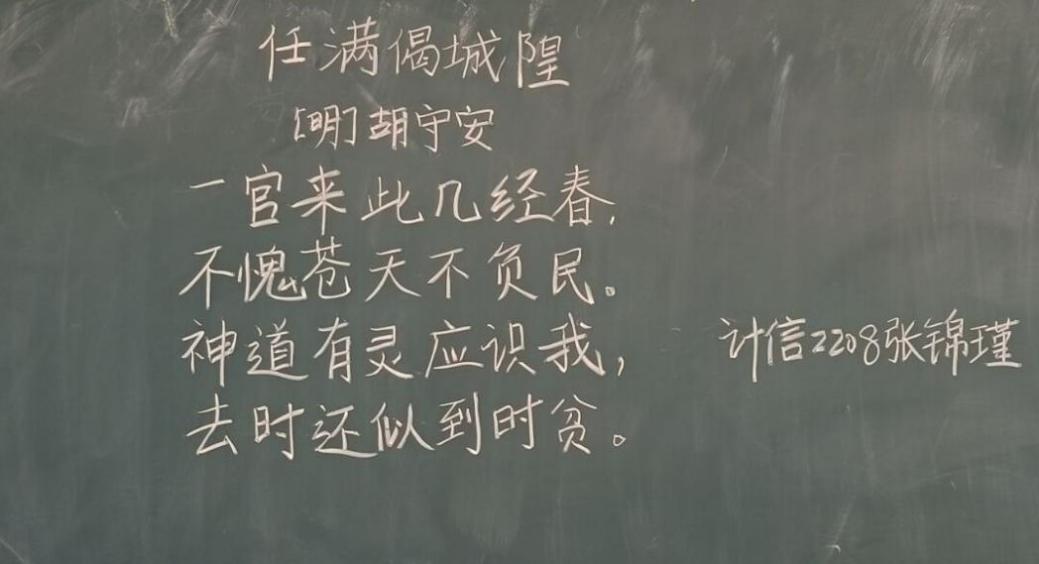 任满偈城隍
[明]胡守安
一官来此几经春,
不愧苍天不负民。
神道有灵应识我,
去时还似到时贫。
计信2208张锦瑾